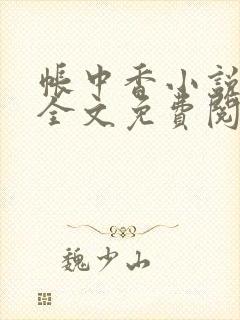 帳中香小說
全文免費閱
魏少山